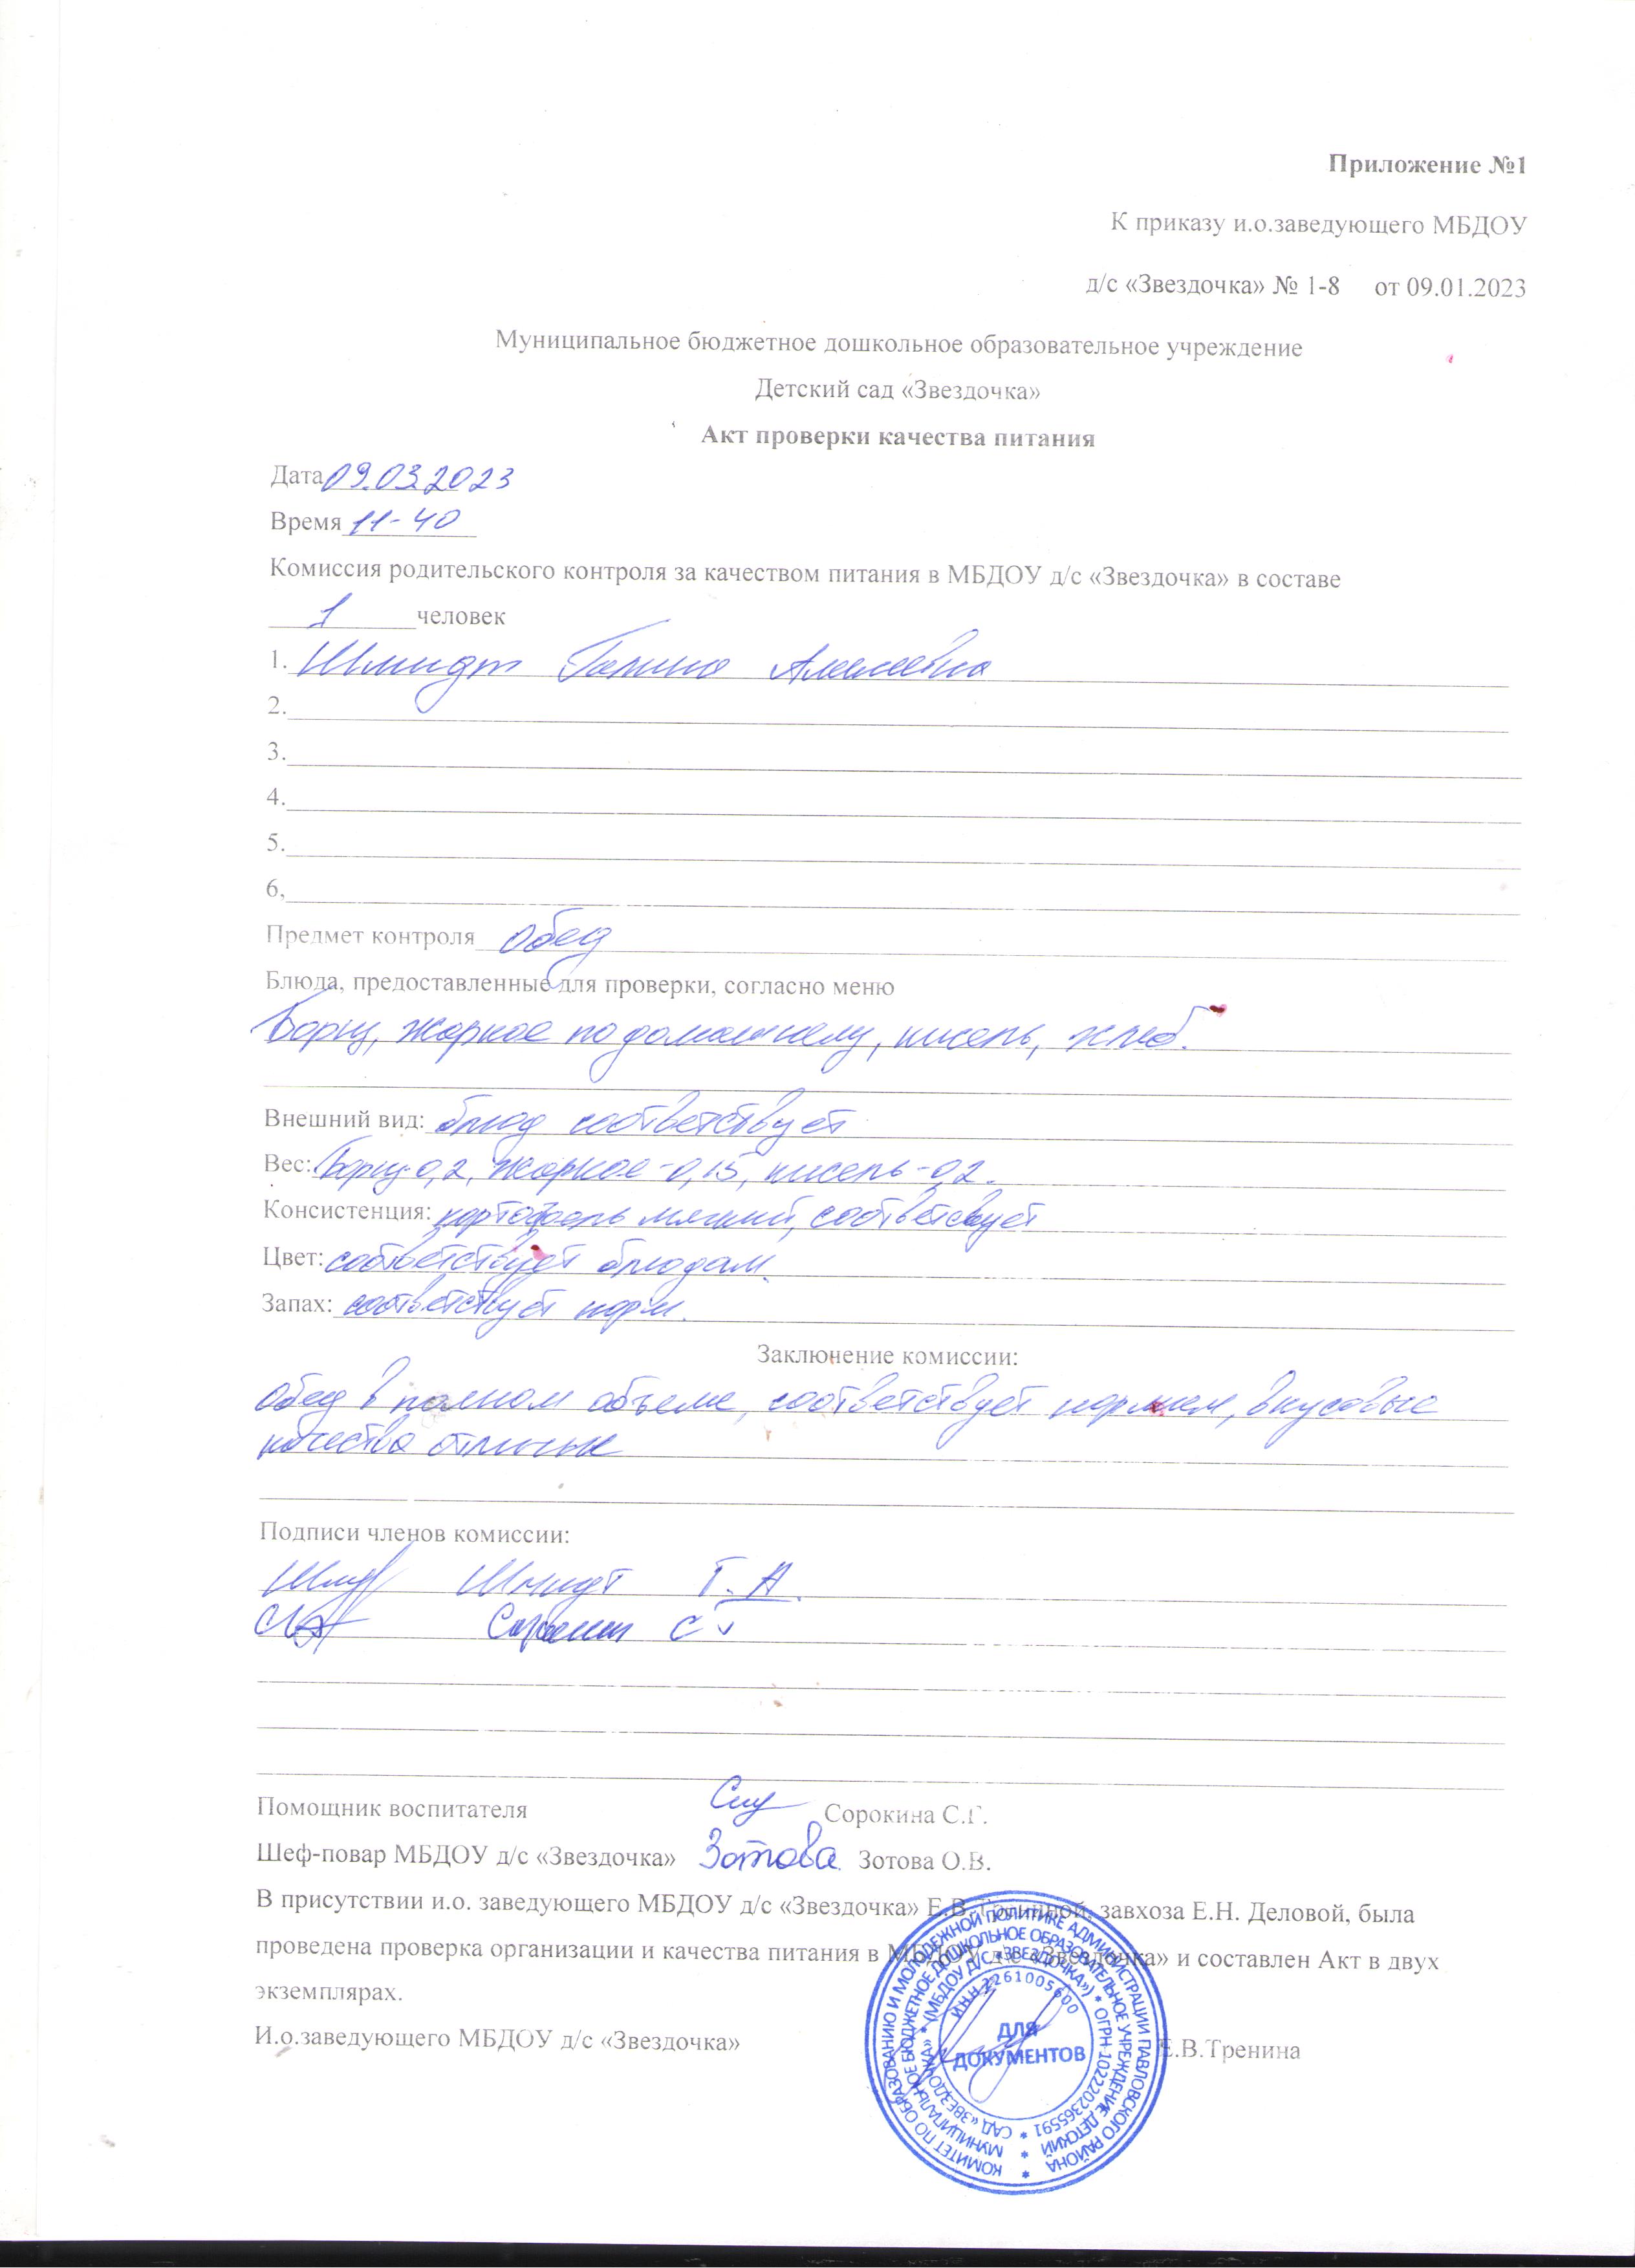 Приложение №1
К приказу и.о.заведующего МБДОУ
д/с «Звездочка» № 1-8 от 09.01.2023
Муниципальное бюджетное дошкольное образовательное учреждение
Детский сад «Звездочка»
Акт проверки качества питания
Дата 09.03.2023
Время 11-40
Комиссия родительского контроля за качеством питания в МБДОУ д/с «Звездочка» в составе
1 человек
1. Шмидт Галина Алексеевна
2.
3.
4.
5.
6,
Предмет контроля обед
Блюда, предоставленные для проверки, согласно меню
Борщ, жаркое по домашнему, кисель, хлеб.
Внешний вид: блюд соответствует
Вес: Борщ-0,2, жаркое-0,15, кисель-0,2.
Консистенция: картофель мягкий, соответсвует
Цвет: соответствует блюдам.
Запах: соответствует норм.
Заключение комиссии:
обед в полном объеме, соответствует нормам, вкусовые
качества отличные
Подписи членов комиссии:
Шмидт Г. А.
С
Помощник воспитателя Сорокина С.Г.
Шеф-повар МБДОУ д/с «Звездочка» Зотова Зотова О.В.
В присутствии и.о. заведующего МБДОУ д/с «Звездочка» Е.В. Трениной, завхоза Е.Н. Деловой, была
проведена проверка организации и качества питания в МБДОУ д/с «Звездочка» и составлен Акт в двух
экземплярах.
И.о.заведующего МБДОУ д/с «Звездочка» Е.В.Тренина
КОМИТЕТ ПО ОБРАЗОВАНИЮ И МОЛОДЕЖНОЙ ПОЛИТИКЕ АДМИНИСТРАЦИИ ПАВЛОВСКОГО РАЙОНА *
МУНИЦИПАЛЬНОЕ БЮДЖЕТНОЕ ДОШКОЛЬНОЕ ОБРАЗОВАТЕЛЬНОЕ УЧРЕЖДЕНИЕ ДЕТСКИЙ *
САД «ЗВЕЗДОЧКА» * (МБДОУ Д/С «ЗВЕЗДОЧКА») * ОГРН 1022202365591 *
ИНН 2261005600
ДЛЯ
ДОКУМЕНТОВ